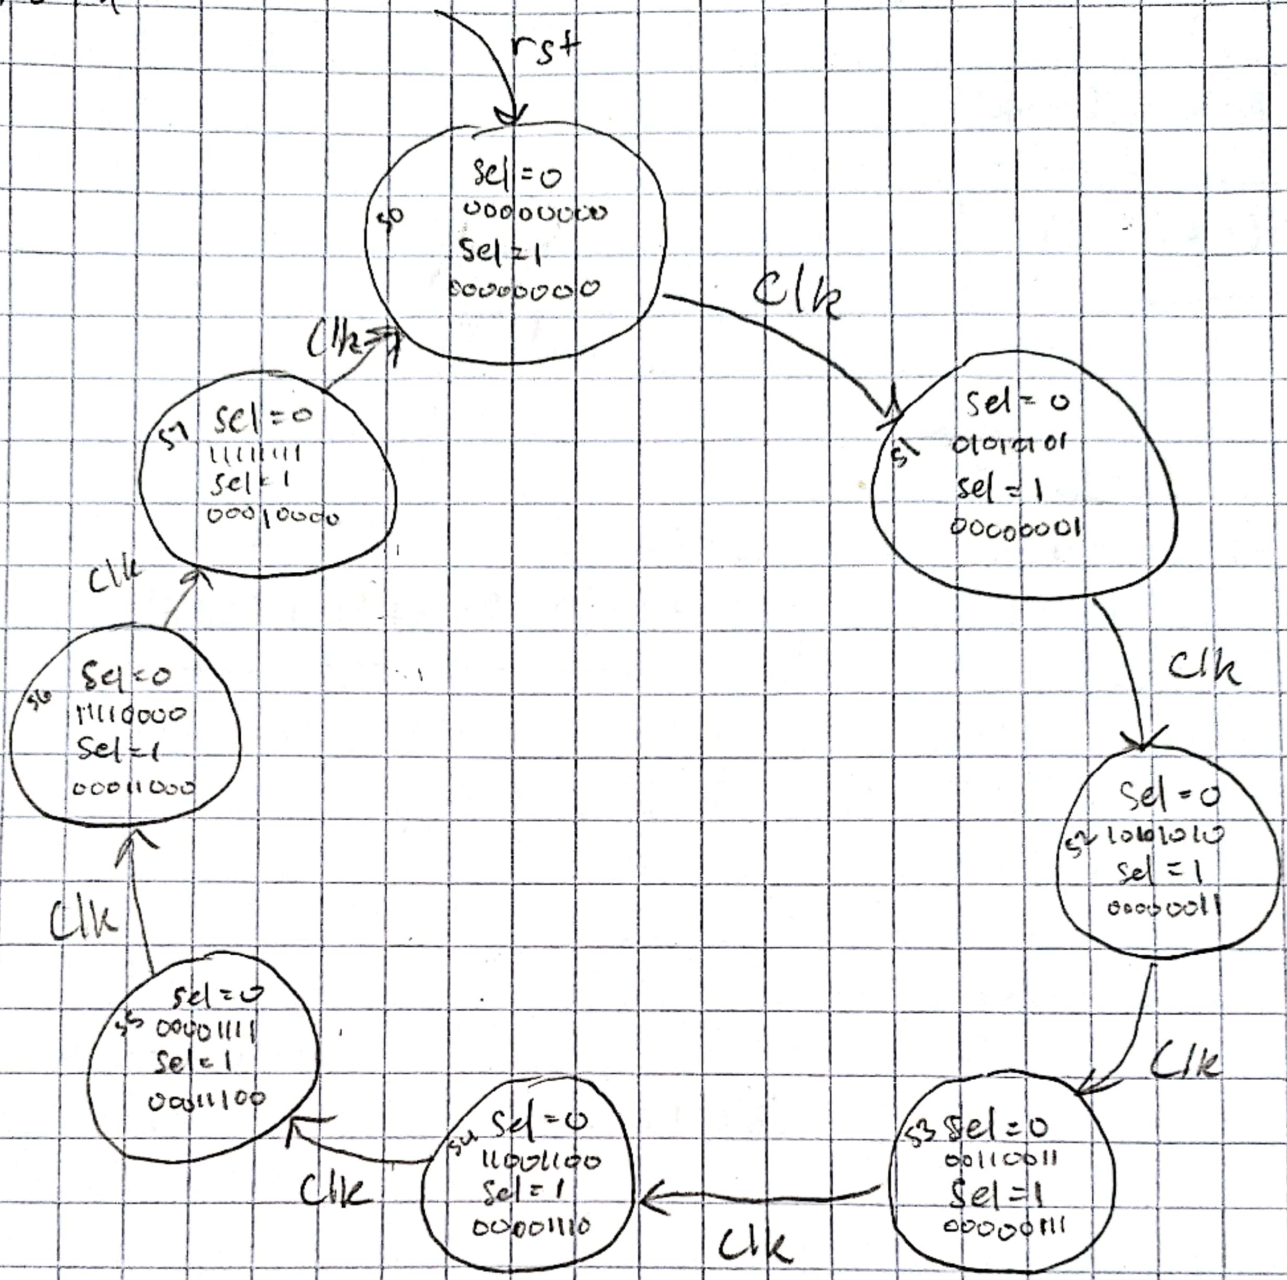 rst
S0
Sel=0
00000000
Sel=1
00000000
Clk
S1
Sel=0
01010101
Sel=1
00000001
Clk
S2
Sel=0
10101010
Sel=1
00000011
Clk
S3
Sel=0
00110011
Sel=1
00000111
Clk
S4
Sel=0
11001100
Sel=1
00001110
Clk
S5
Sel=0
00001111
Sel=1
00011100
Clk
S6
Sel=0
11110000
Sel=1
00011000
Clk
S7
Sel=0
11111111
Sel=1
00010000
Clk